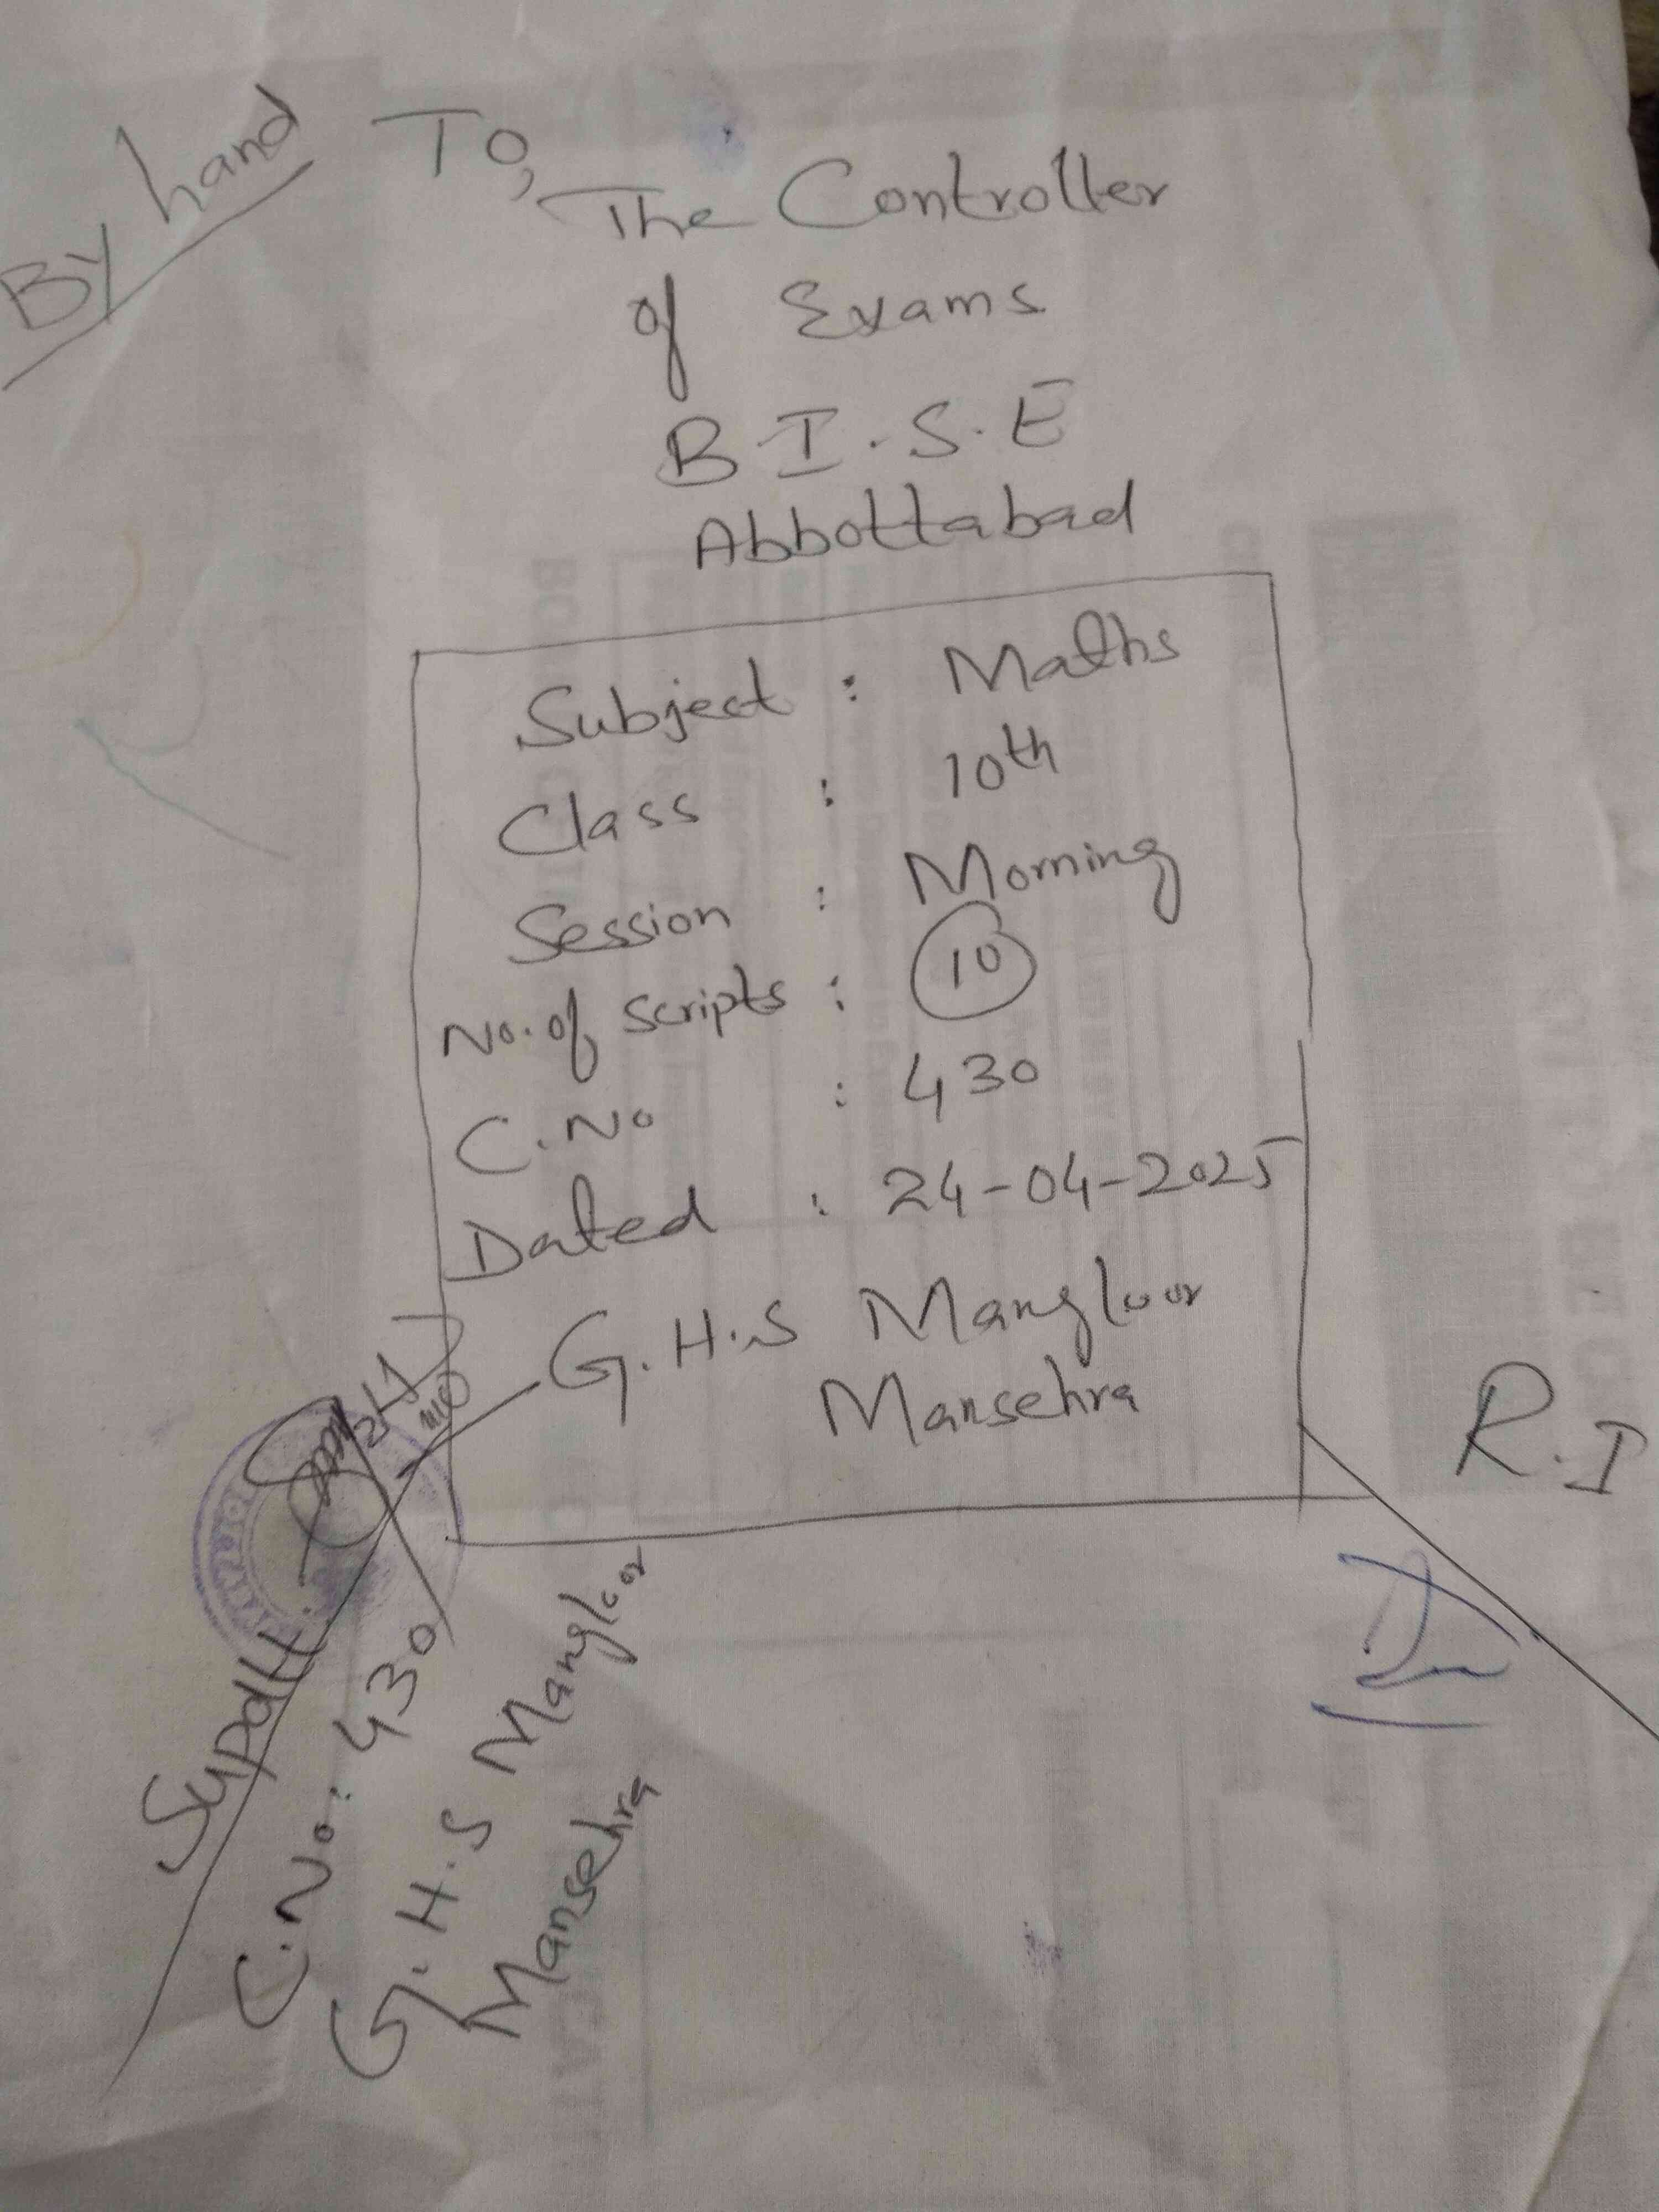 By hand
To,
The Controller
of Exams
B.I.S.E
Abbottabad
Subject : Maths
Class : 10th
Session : Morning
No. of scripts : 10
C.No : 430
Dated : 24-04-2025
G.H.S Mangloor
Mansehra
R.I
Supdtt:
C.No: 430
G.H.S Mangloor
Mansehra